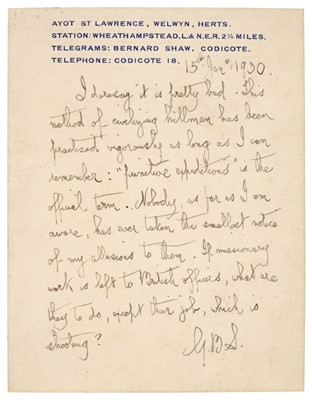 AYOT ST LAWRENCE, WELWYN, HERTS.
STATION: WHEATHAMPSTEAD, L. & N.E.R. 2¼ MILES.
TELEGRAMS: BERNARD SHAW, CODICOTE.
TELEPHONE: CODICOTE 18.
15th Jany. 1930.
I daresay it is pretty bad. This
method of civilizing hillmen has been
practized vigorously as long as I can
remember: "punitive expeditions" is the
official term. Nobody, as far as I am
aware, has ever taken the smallest notice
of my allusions to them. If missionary
work is left to British officers, what are
they to do, except their job, which is
shooting?
G.B.S.